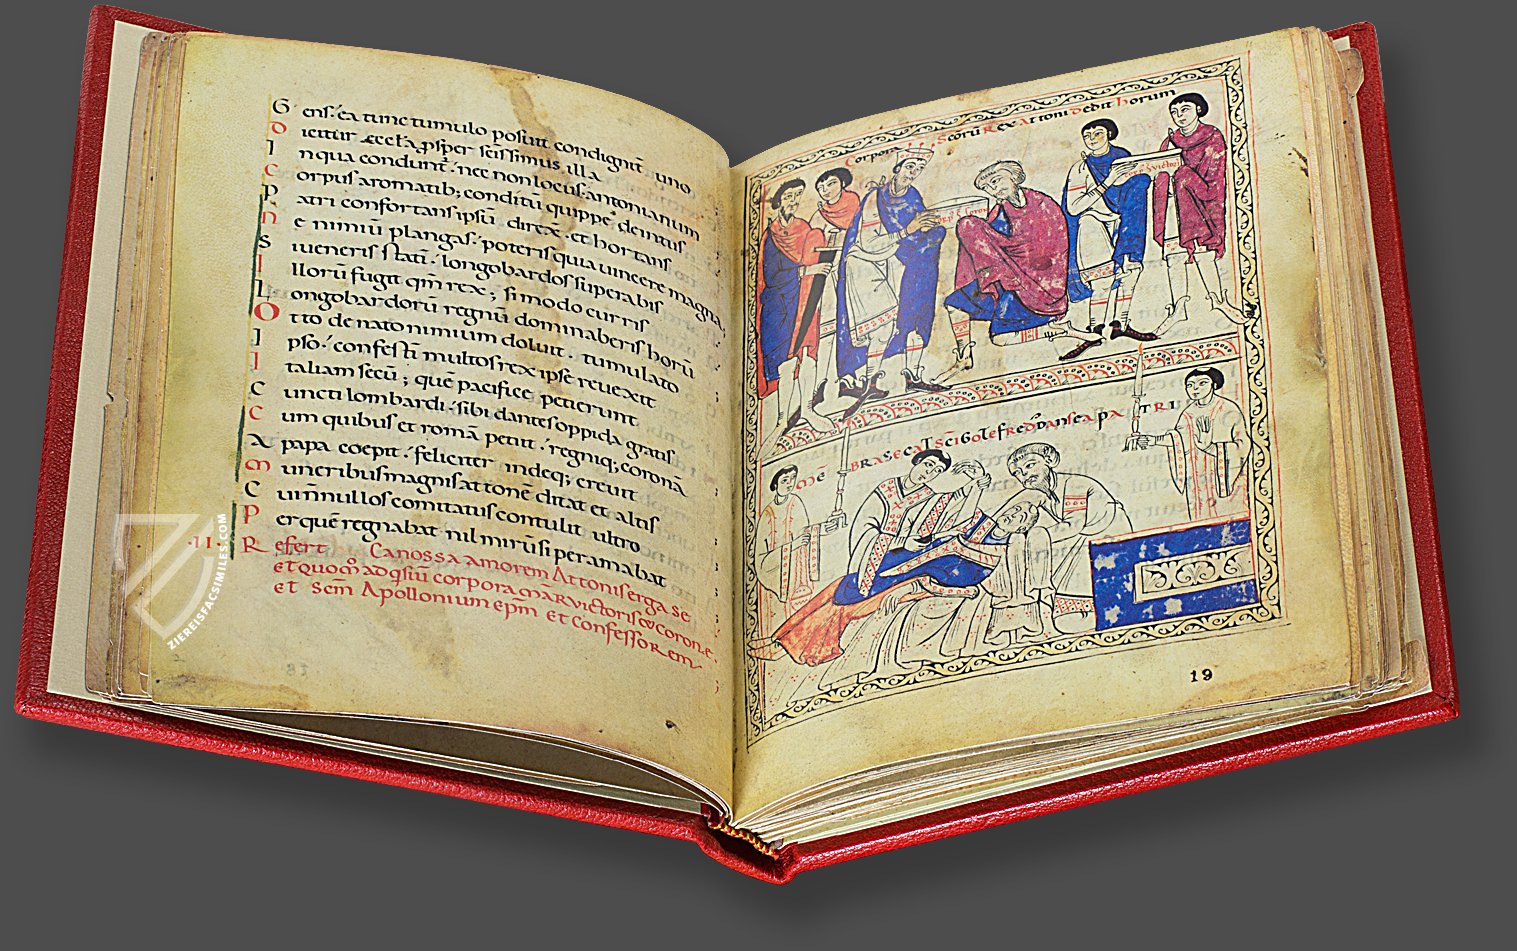 G ens. ea tunc tumulo posuit condignū uno
O icitur eccła p̱sper seissimus illa
I nqua condunt̄. nec non locus antonianum
C orpus aromatib; conditū quippe deintus
P atri confortans ipsū diræx. et hortans
N e nimiū plangas. poteris quia uincere magna;
S iueneris statī. longobardos superabis
I llorū fugit qm̄ rex; si modo curris
L ongobardorū regnū dominaberis horū
O tto de nato nimium doluit. tumulato
I pso. confestī multos rex ipse reuexit
I taliam secū; quē pacifice petierunt
C uncti lombardi. sibi dantes oppida gratis
C um quibus et romā petiit. regniq; coronā
A papa coepit. feliciter indeq; creuit
M uneribus magnis attonē ditat et altis
C ui nn̄ullos comitatus contulit ultro
P erquē regnabat nil mirūsi peramabat
.II. Refert Canossa amorem Attonis erga se
et quom̊ adq̄siū corpora mar Victoris & Corone
et Scm̄ Apollonium ep̄m et Confessorem
Corpora Scorū Rex Attoni dedit horum
corp̄ S. coron
corp̄ S. Victori
MĒBRA SECAT SC̄I GOTEFREDꝰ DANS EA PATRI
19
ZIEREISFACSIMILES.COM